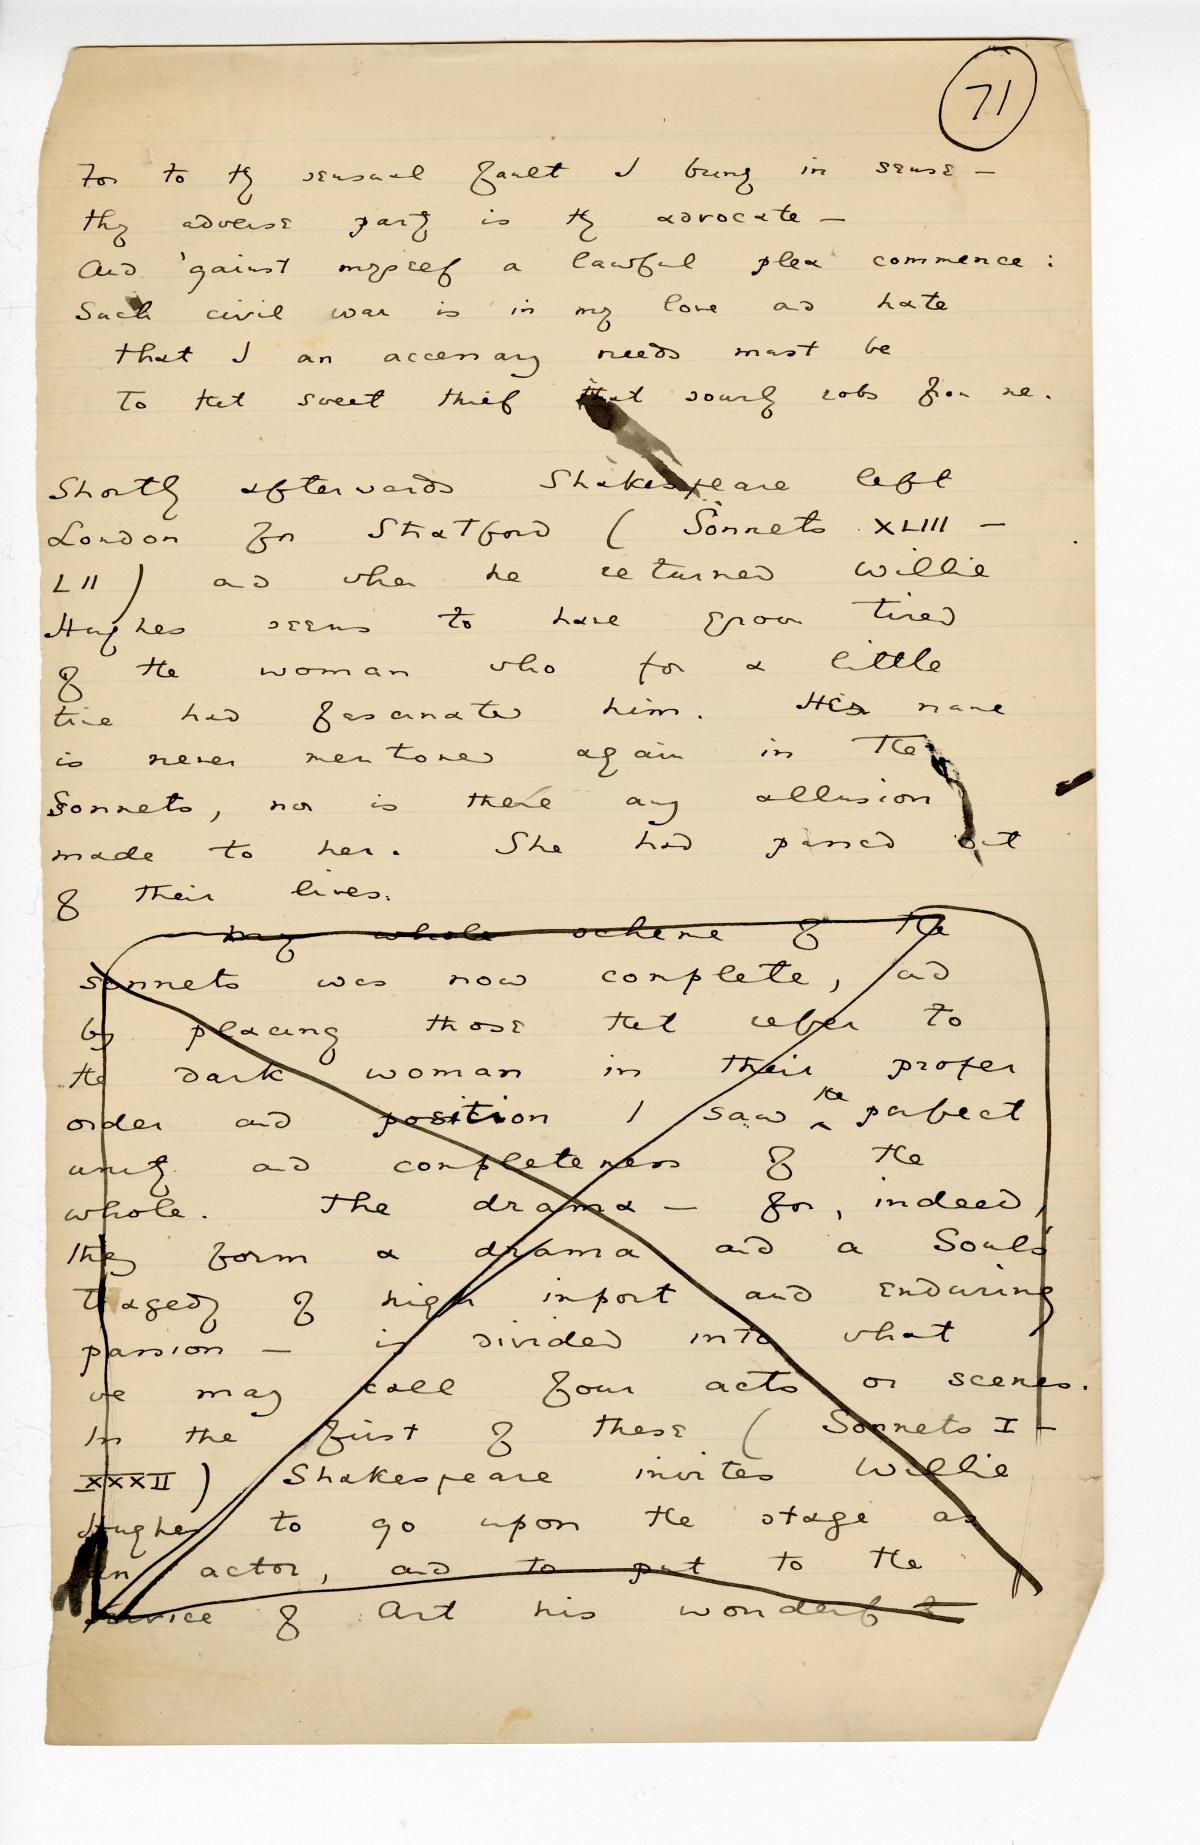 71
For to thy sensual fault I bring in sense —
Thy adverse party is thy advocate —
And 'gainst myself a lawful plea commence :
Such civil war is in my love and hate
That I an accessary needs must be
To that sweet thief that sourly robs from me.
Shortly afterwards Shakespeare left
London for Stratford ( Sonnets XLIII —
LII ) and when he returned Willie
Hughes seems to have grown tired
of the woman who for a little
time had fascinated him. Her name
is never mentioned again in the
Sonnets, nor is there any allusion
made to her. She had passed out
of their lives.
My whole scheme of the
sonnets was now complete, and
by placing those that refer to
the dark woman in their proper
order and position I saw the perfect
unity and completeness of the
whole. The drama — for, indeed,
they form a drama and a Soul's
tragedy of high import and enduring
passion — is divided into what
we may call four acts or scenes.
In the first of these ( Sonnets I —
XXXII ) Shakespeare invites Willie
Hughes to go upon the stage as
an actor, and to put to the
service of Art his wonderful